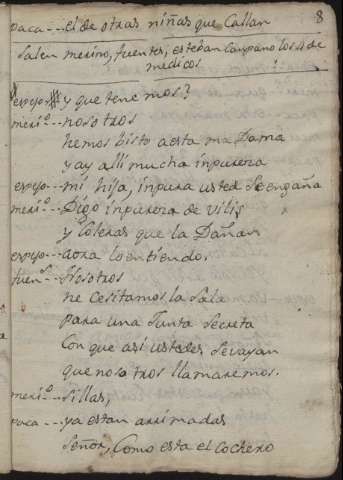 8
paca---- el de otras niñas que Callan
Salen merino, fuentes, esteban Campano los 4 de
medicos
espejo--- y que tenemos?
meri.º--- nosotros
hemos bisto aesta ma Dama
y ay alli mucha inpureza
espejo--- mi hija, inpura usted Se engaña
meri.º--- Digo inpureza de vilis
y Coleras que la Dañan
espejo--- aora lo entiendo.
fuen.s--- Nosotros
necesitamos la Sala
para una Junta Secreta
Con que asi ustedes Sevayan
que nosotros llamaremos.
meri.º--- Sillas,
paca---- ya estan arrimadas
Señor, Como esta el Cochero